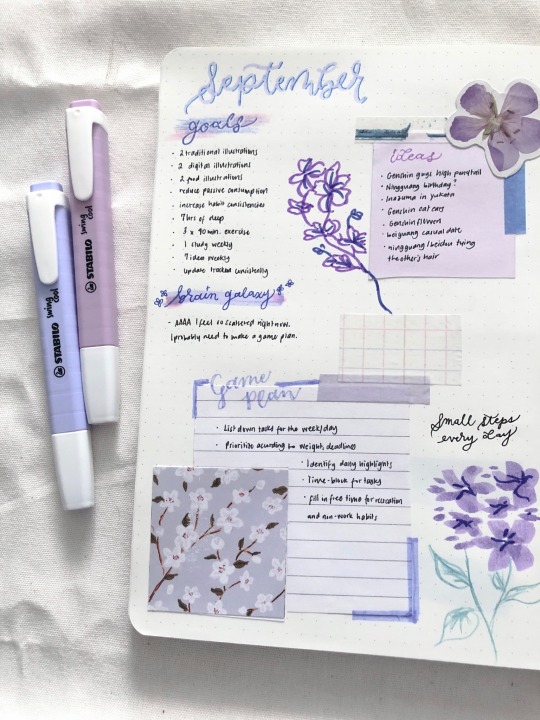 September
goals
• 2 traditional illustrations
• 2 digital illustrations
• 2 pod illustrations
• reduce passive consumption
• increase habit consistencies
• 7 hrs of sleep
• 3 x 90 min. exercise
• 1 study weekly
• 7 idea weekly
• update tracker consistently
brain galaxy
• AAAA I feel so scattered right now.
I probably need to make a game plan.
Ideas
• Genshin guys high ponytail
• Ningguang birthday!
• Inazuma in yukata
• Genshin cat ears
• Genshin
• beiguang casual date
• ningguang/beidou tying
the other's hair
Game
plan
• List down tasks for the week/day
• Prioritize acording to weight, deadlines
• Identify daily highlights
• Time-block for tasks
• fill in free time for recreation
and non-work habits
Small steps
every day
STABILO swing cool
STABILO swing cool